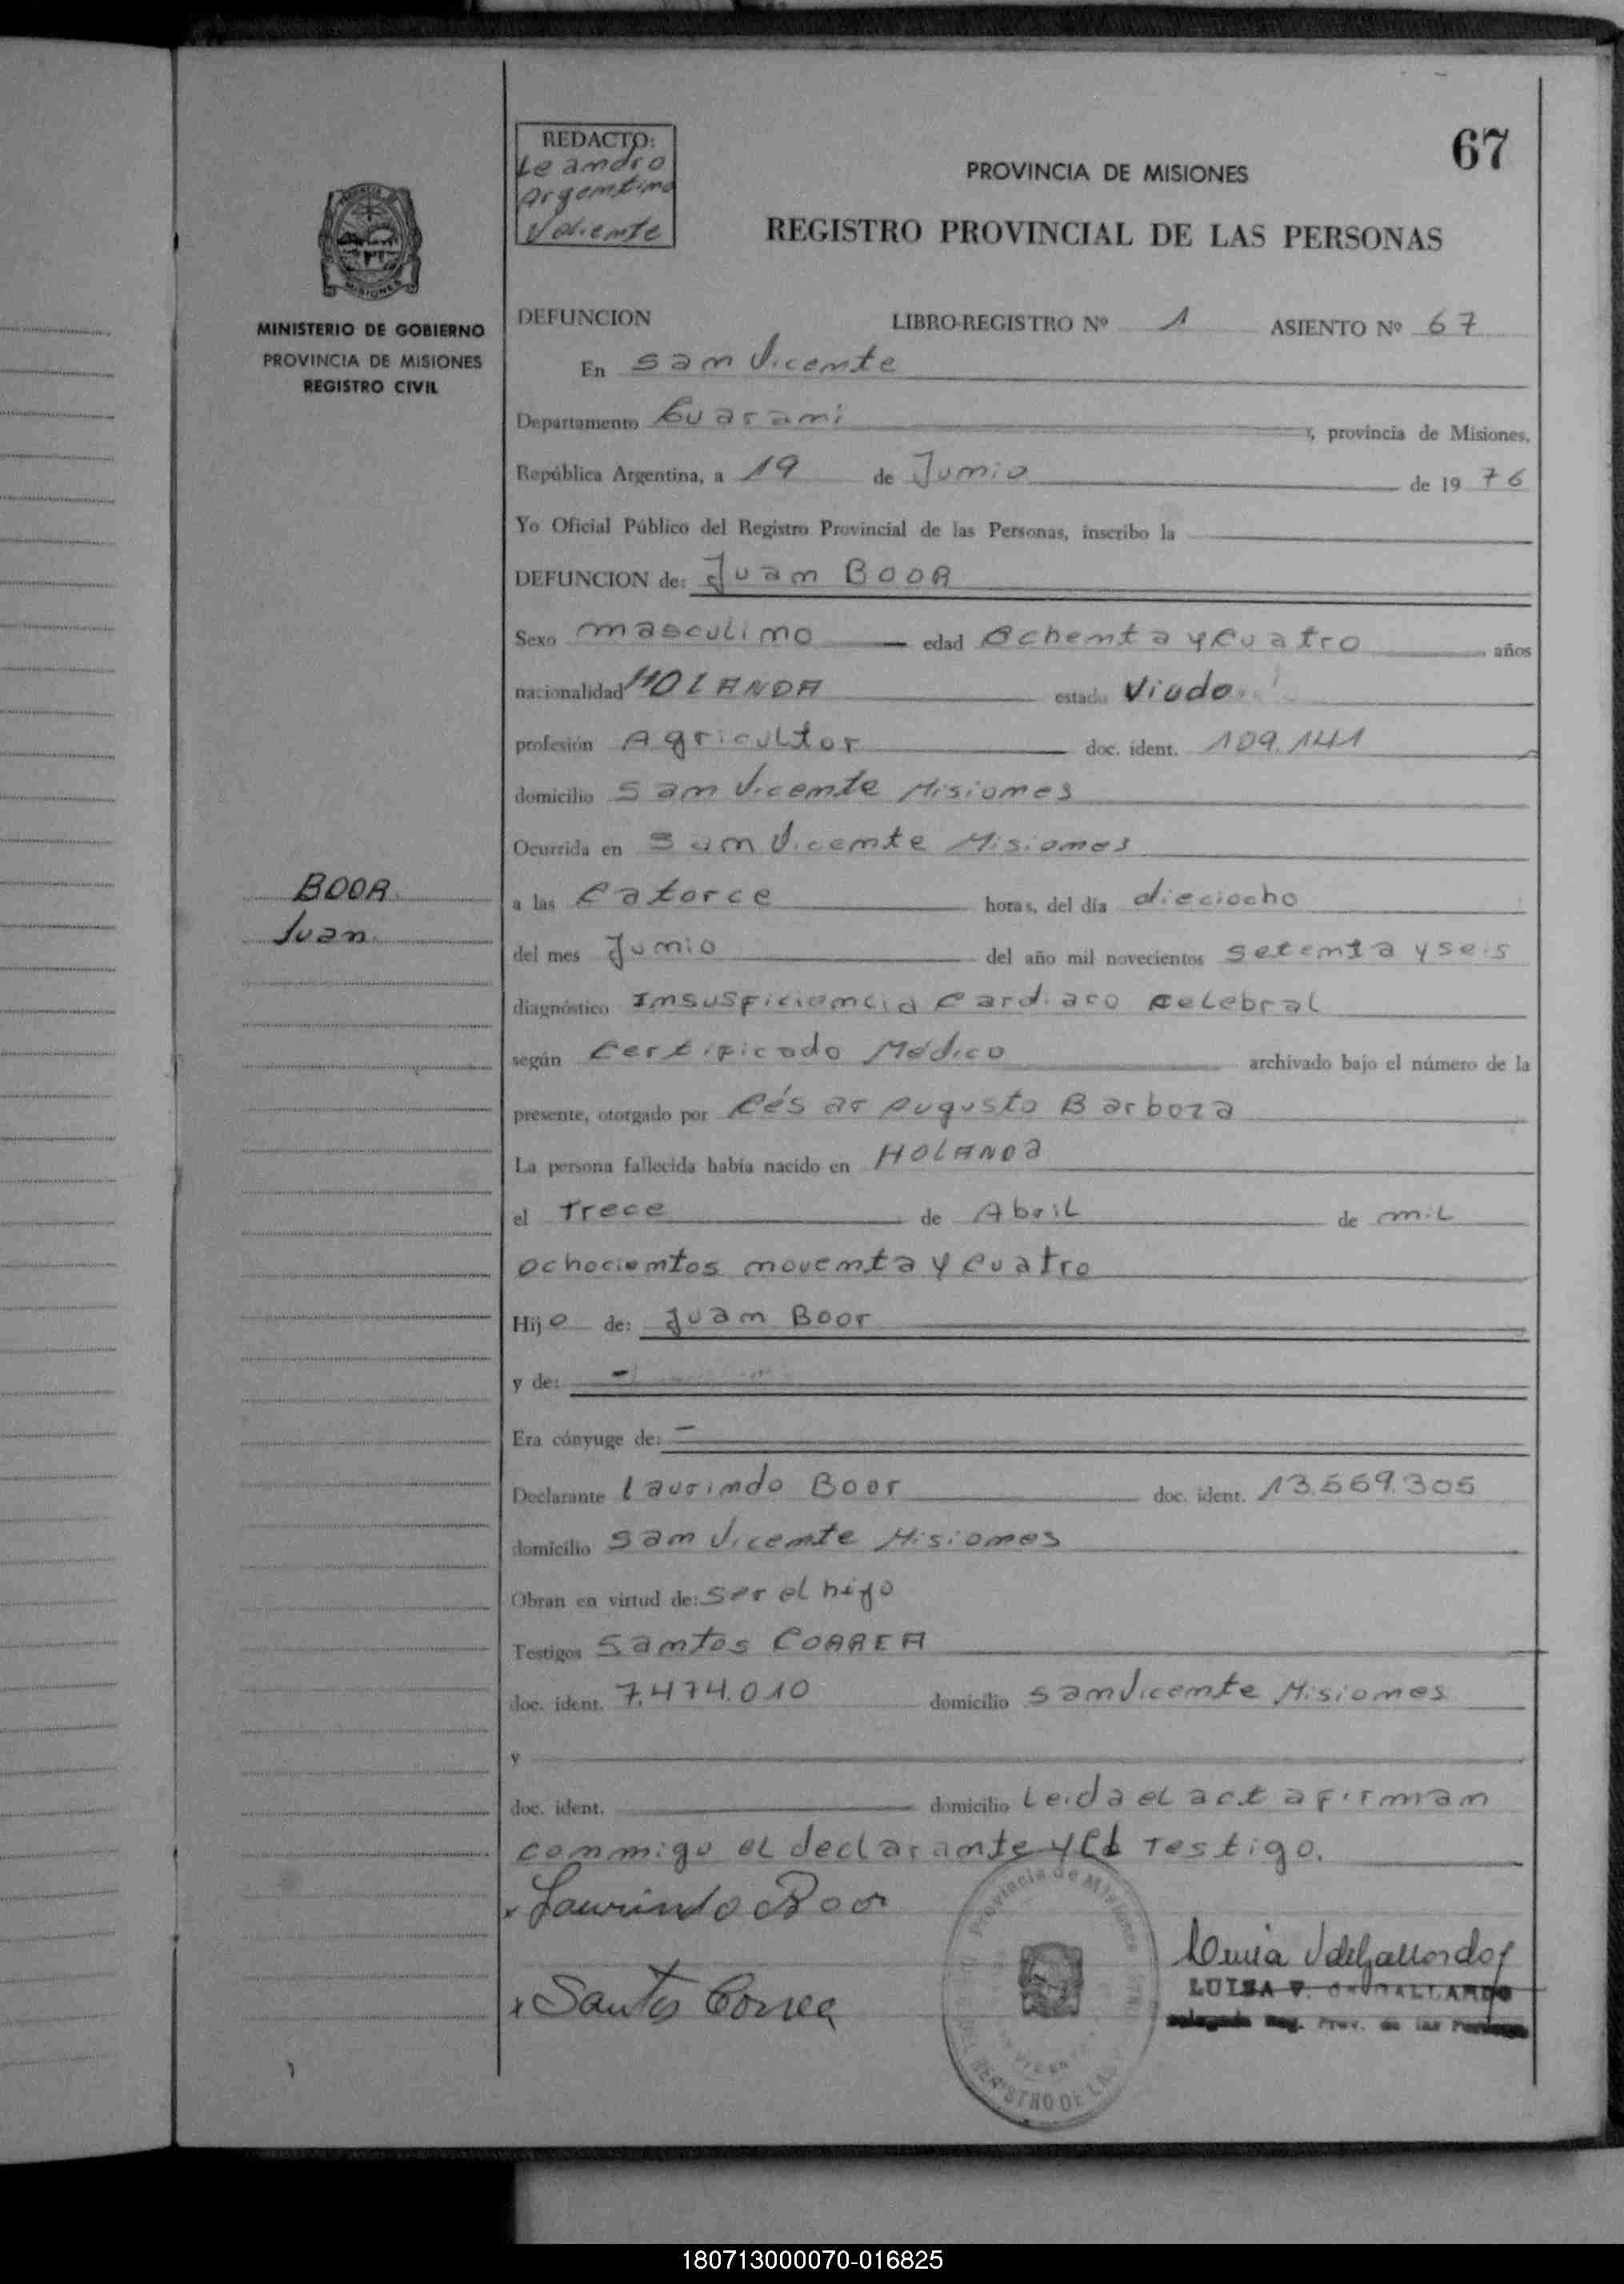 67
REDACTO:
Leandro
Argentino
Valiente
PROVINCIA DE MISIONES
REGISTRO PROVINCIAL DE LAS PERSONAS
MISIONES
MINISTERIO DE GOBIERNO
PROVINCIA DE MISIONES
REGISTRO CIVIL
DEFUNCION LIBRO-REGISTRO Nº 1 ASIENTO Nº 67
En San Vicente
Departamento Guarani, provincia de Misiones,
República Argentina, a 19 de Junio de 1976
Yo Oficial Público del Registro Provincial de las Personas, inscribo la
DEFUNCION de: Juan BOOR
Sexo masculino edad Ochenta y Cuatro años
nacionalidad HOLANDA estado Viudo
profesión Agricultor doc. ident. 109.141
domicilio San Vicente Misiones
Ocurrida en San Vicente Misiones
BOOR
Juan
a las Catorce horas, del día dieciocho
del mes Junio del año mil novecientos setenta y seis
diagnóstico Insusficiencia Cardiaco Celebral
según Certificado Médico archivado bajo el número de la
presente, otorgado por César Augusto Barboza
La persona fallecida había nacido en HOLANDA
el Trece de Abril de mil
ochocientos noventa y cuatro
Hijo de: Juan Boor
y de: -
Era cónyuge de: -
Declarante Laurindo Boor doc. ident. 13.569.305
domicilio San Vicente Misiones
Obran en virtud de: Ser el hijo
Testigos Santos CORREA
doc. ident. 7.474.010 domicilio San Vicente Misiones
y
doc. ident. domicilio Leida el acta firman
conmigo el declarante y el Testigo.
x Laurindo Boor
Provincia de Misiones
REGISTRO DE LAS
x Santos Correa
LUISA V.
Delegada Reg. Prov. de las Personas
180713000070-016825